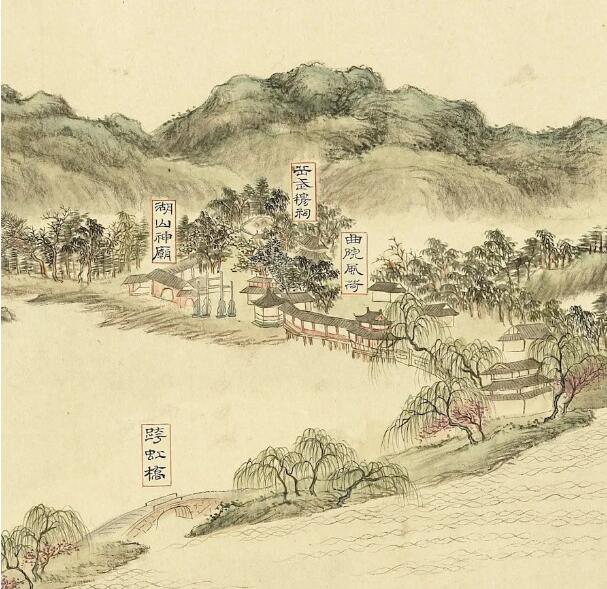 岳武穆祠
湖山神廟
曲院風荷
跨虹橋